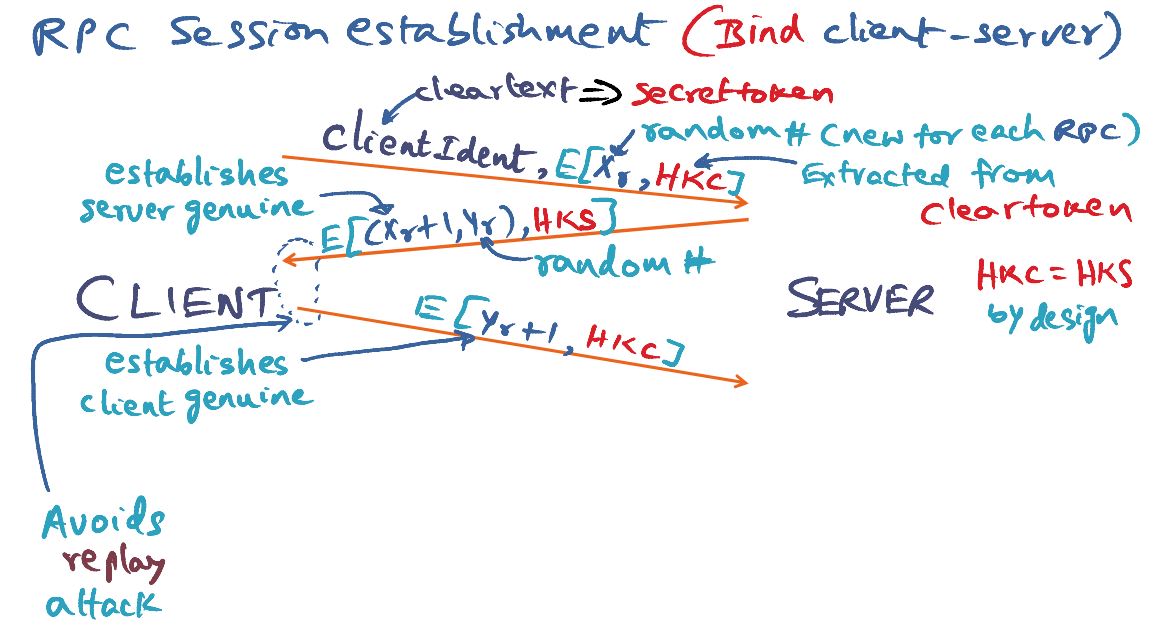 RPC Session establishment (Bind client-server)
cleartext ⇒ secrettoken
ClientIdent, E[Xr, HKC]
random # (new for each RPC)
Extracted from
cleartoken
establishes
server genuine
E[(Xr+1, Yr), HKS]
random #
CLIENT
SERVER
HKC = HKS
by design
E[Yr+1, HKC]
establishes
client genuine
Avoids
replay
attack